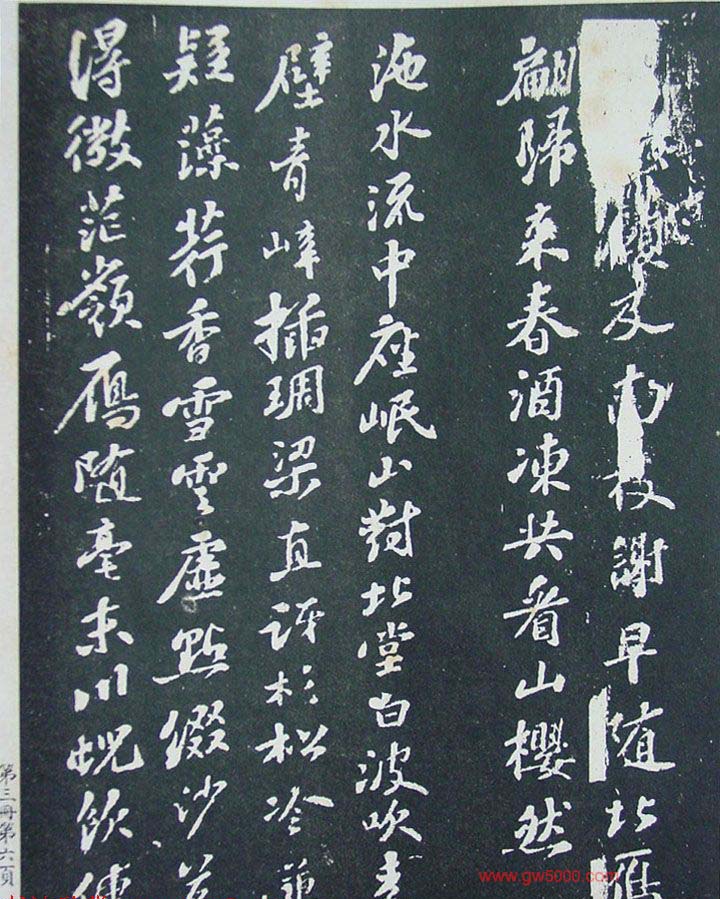 南枝謝早随北鴈
翩歸来春酒凍共看山櫻然
沲水流中座岷山對北堂白波吹
壁青嶂插琱梁直訝杉松冷兼
疑藻荇香雪雲虛點綴沙草
得微茫嶺鴈随毫末川蜺飲
第三冊第六頁
www.gw5000.com